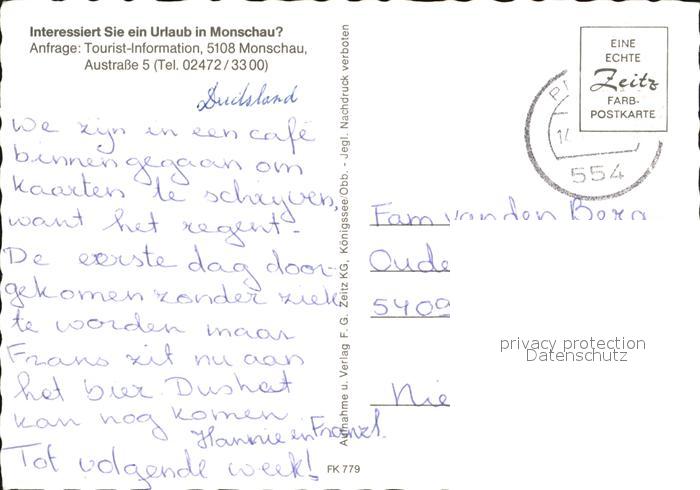 Interessiert Sie ein Urlaub in Monschau?
Anfrage: Tourist-Information, 5108 Monschau,
Austraße 5 (Tel. 02472/3300)
Duitsland
We zijn in een café
binnengegaan om
kaarten te schrijven,
want het regent.
De eerste dag door-
gekomen zonder ziek
te worden maar
Frans zit nu aan
het bier. Dus hat
kan nog komen.
Hannie en Frans
Tot volgende week!
Aufnahme u. Verlag F. G. Zeitz KG, Königssee/Obb. - Jegl. Nachdruck verboten
FK 779
EINE
ECHTE
Zeitz
FARB-
POSTKARTE
554
Fam van den Berg
Oude
5409
Nie
privacy protection
Datenschutz